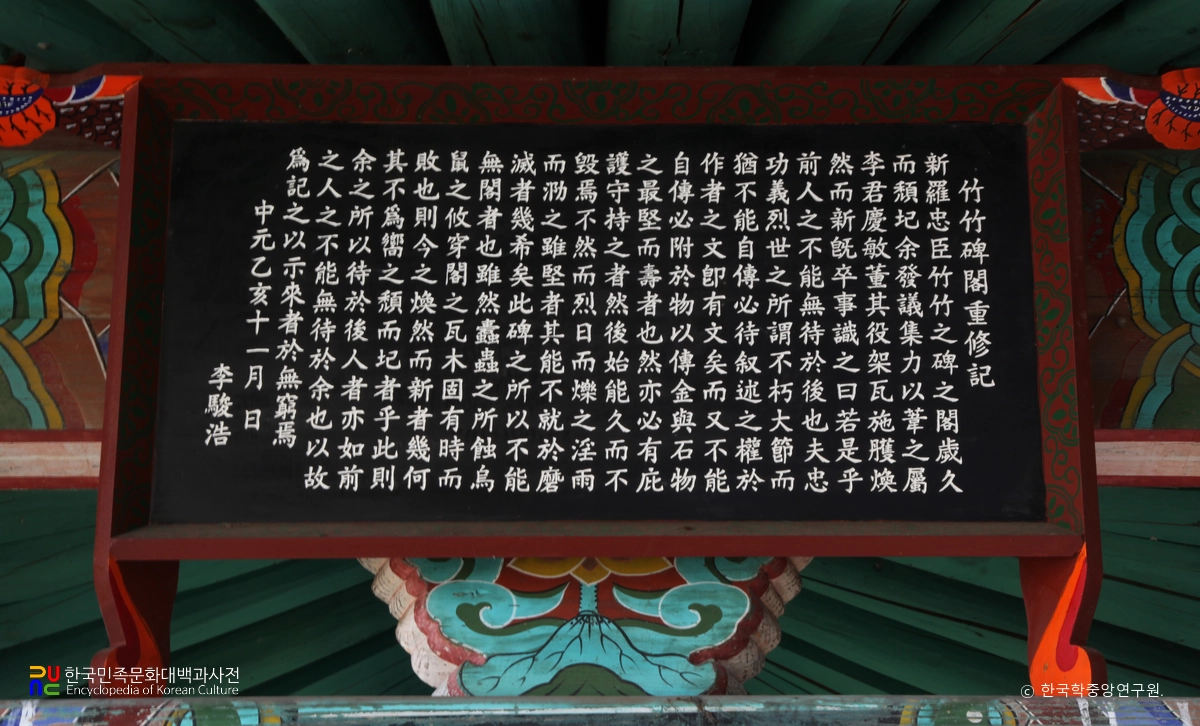 竹竹碑閣重修記
新羅忠臣竹竹之碑之閣歲久
而頹圮余發議集力以葺之屬
李君慶敏董其役架瓦施雘煥
然而新旣卒事識之曰若是乎
前人之不能無待於後也夫忠
功義烈世之所謂不朽大節而
猶不能自傳必待叙述之權於
作者之文卽有文矣而又不能
自傳必附於物以傳金與石物
之最堅而壽者也然亦必有庇
護守持之者然後始能久而不
毀焉不然而烈日而爍之淫雨
而泐之雖堅者其能不就於磨
滅者幾希矣此碑之所以不能
無閣者也雖然蠹蟲之所蝕烏
鼠之攸穿閣之瓦木固有時而
敗也則今之煥然而新者幾何
其不爲嚮之頹而圮者乎此則
余之所以待於後人者亦如前
之人之不能無待於余也以故
爲記之以示來者於無窮焉
中元乙亥十一月 日
李駿浩
한국민족문화대백과사전
Encyclopedia of Korean Culture
© 한국학중앙연구원.